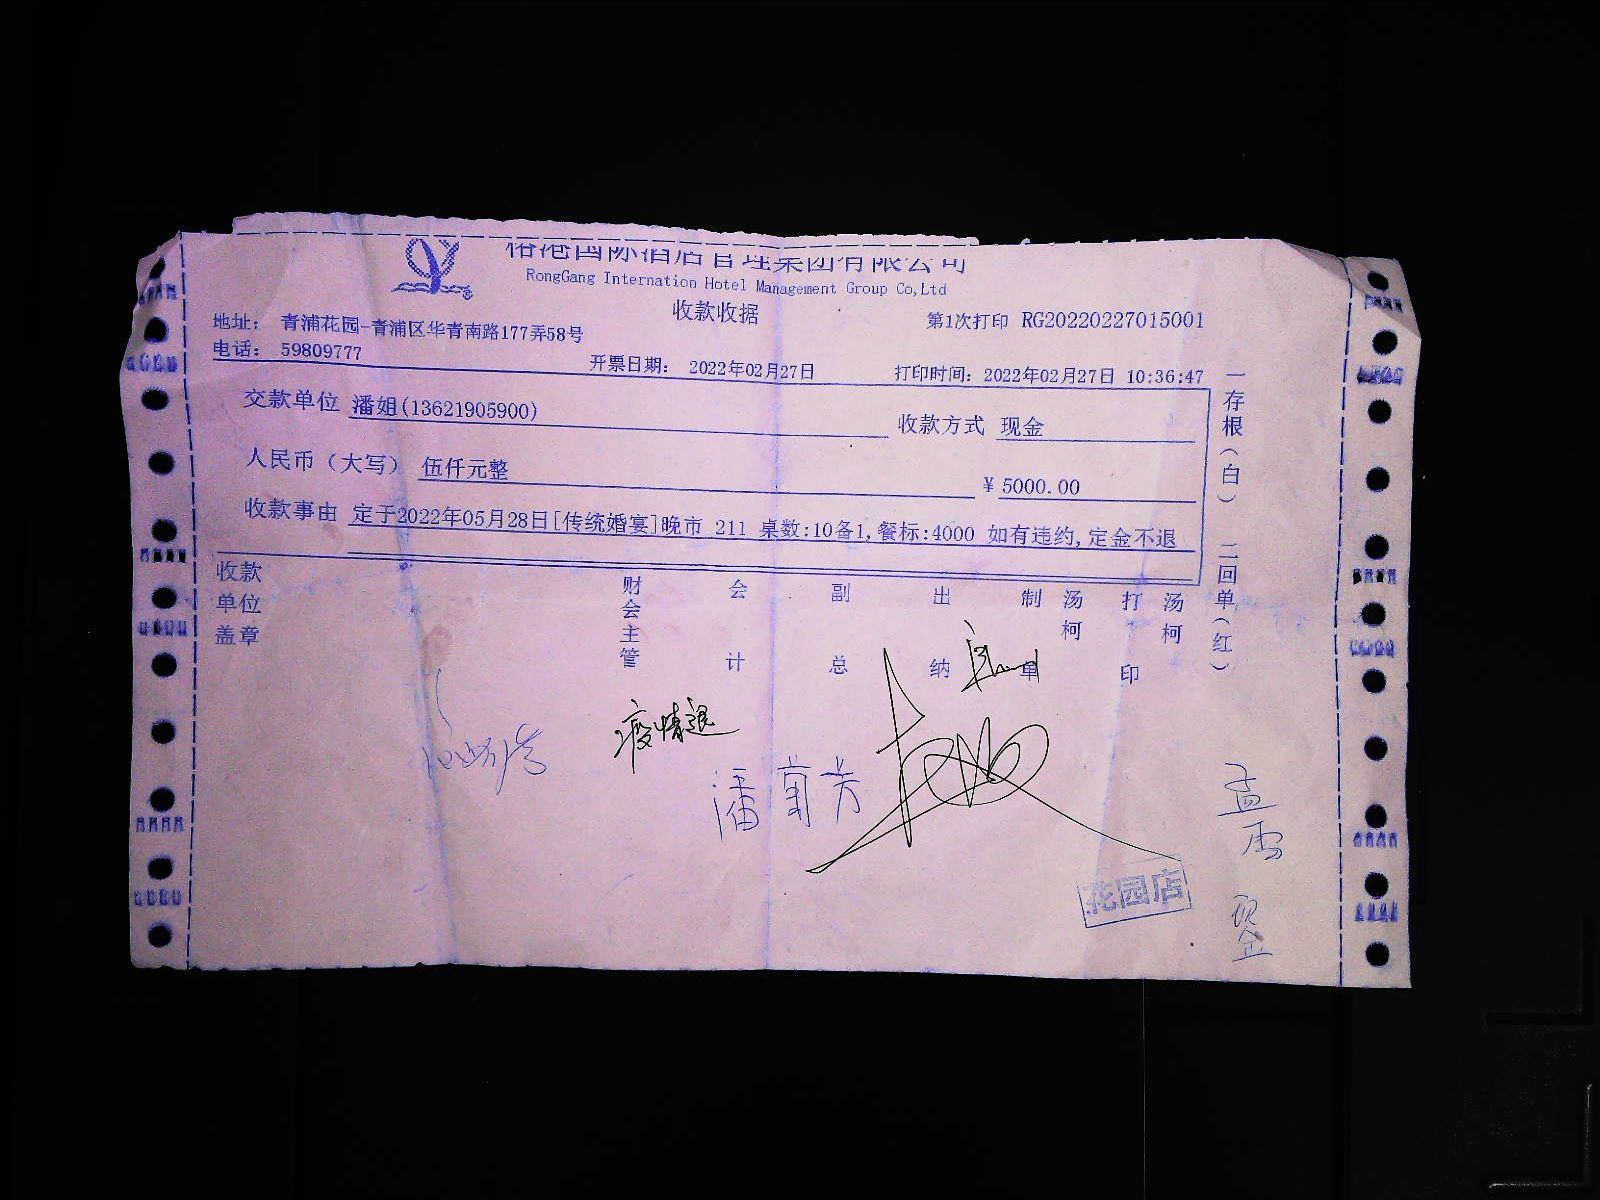 榕港国际酒店管理集团有限公司
RongGang Internation Hotel Management Group Co,Ltd
收款收据
第1次打印 RG20220227015001
地址： 青浦花园-青浦区华青南路177弄58号
电话： 59809777
开票日期： 2022年02月27日
打印时间：2022年02月27日 10:36:47
交款单位 潘姐(13621905900)
收款方式 现金
人民币（大写） 伍仟元整
¥ 5000.00
收款事由 定于2022年05月28日[传统婚宴]晚市 211 桌数:10备1,餐标:4000 如有违约,定金不退
一存根（白） 二回单（红）
收款单位盖章
财会主管
会计
副总
出纳
制单
汤柯
打印
汤柯
疫情退
潘菊芳
花园店
现金